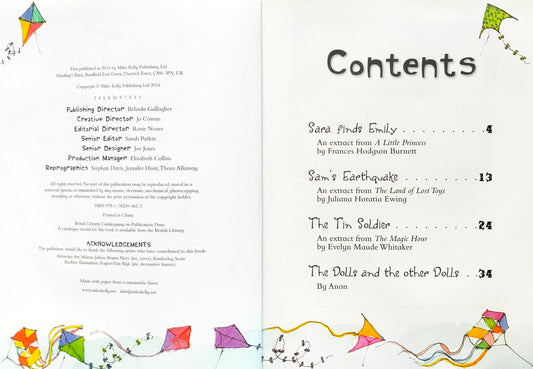 First published in 2014 by Miles Kelly Publishing Ltd
Harding's Barn, Bardfield End Green, Thaxted, Essex, CM6 3PX, UK
Copyright © Miles Kelly Publishing Ltd 2014
2 4 6 8 10 9 7 5 3 1
Publishing Director Belinda Gallagher
Creative Director Jo Cowan
Editorial Director Rosie Neave
Senior Editor Sarah Parkin
Senior Designer Joe Jones
Production Manager Elizabeth Collins
Reprographics Stephan Davis, Jennifer Hunt, Thom Allaway
All rights reserved. No part of this publication may be reproduced, stored in a
retrieval system, or transmitted by any means, electronic, mechanical, photocopying,
recording or otherwise, without the prior permission of the copyright holder.
ISBN 978-1-78209-462-3
Printed in China
British Library Cataloguing-in-Publication Data
A catalogue record for this book is available from the British Library
ACKNOWLEDGEMENTS
The publishers would like to thank the following artists who have contributed to this book:
Advocate Art: Milena Jahier, Bruno Merz (inc. cover), Kimberley Scott
(inc. decorative frames)
Made with paper from a sustainable forest
www.mileskelly.net info@mileskelly.net
Contents
Sara finds Emily . . . . . . . . . 4
An extract from A Little Princess
by Frances Hodgson Burnett
Sam's Earthquake . . . . . . . . 13
An extract from The Land of Lost Toys
by Juliana Horatia Ewing
The Tin Soldier . . . . . . . . . 24
An extract from The Magic Hour
by Evelyn Maude Whitaker
The Dolls and the other Dolls . . 34
By Anon